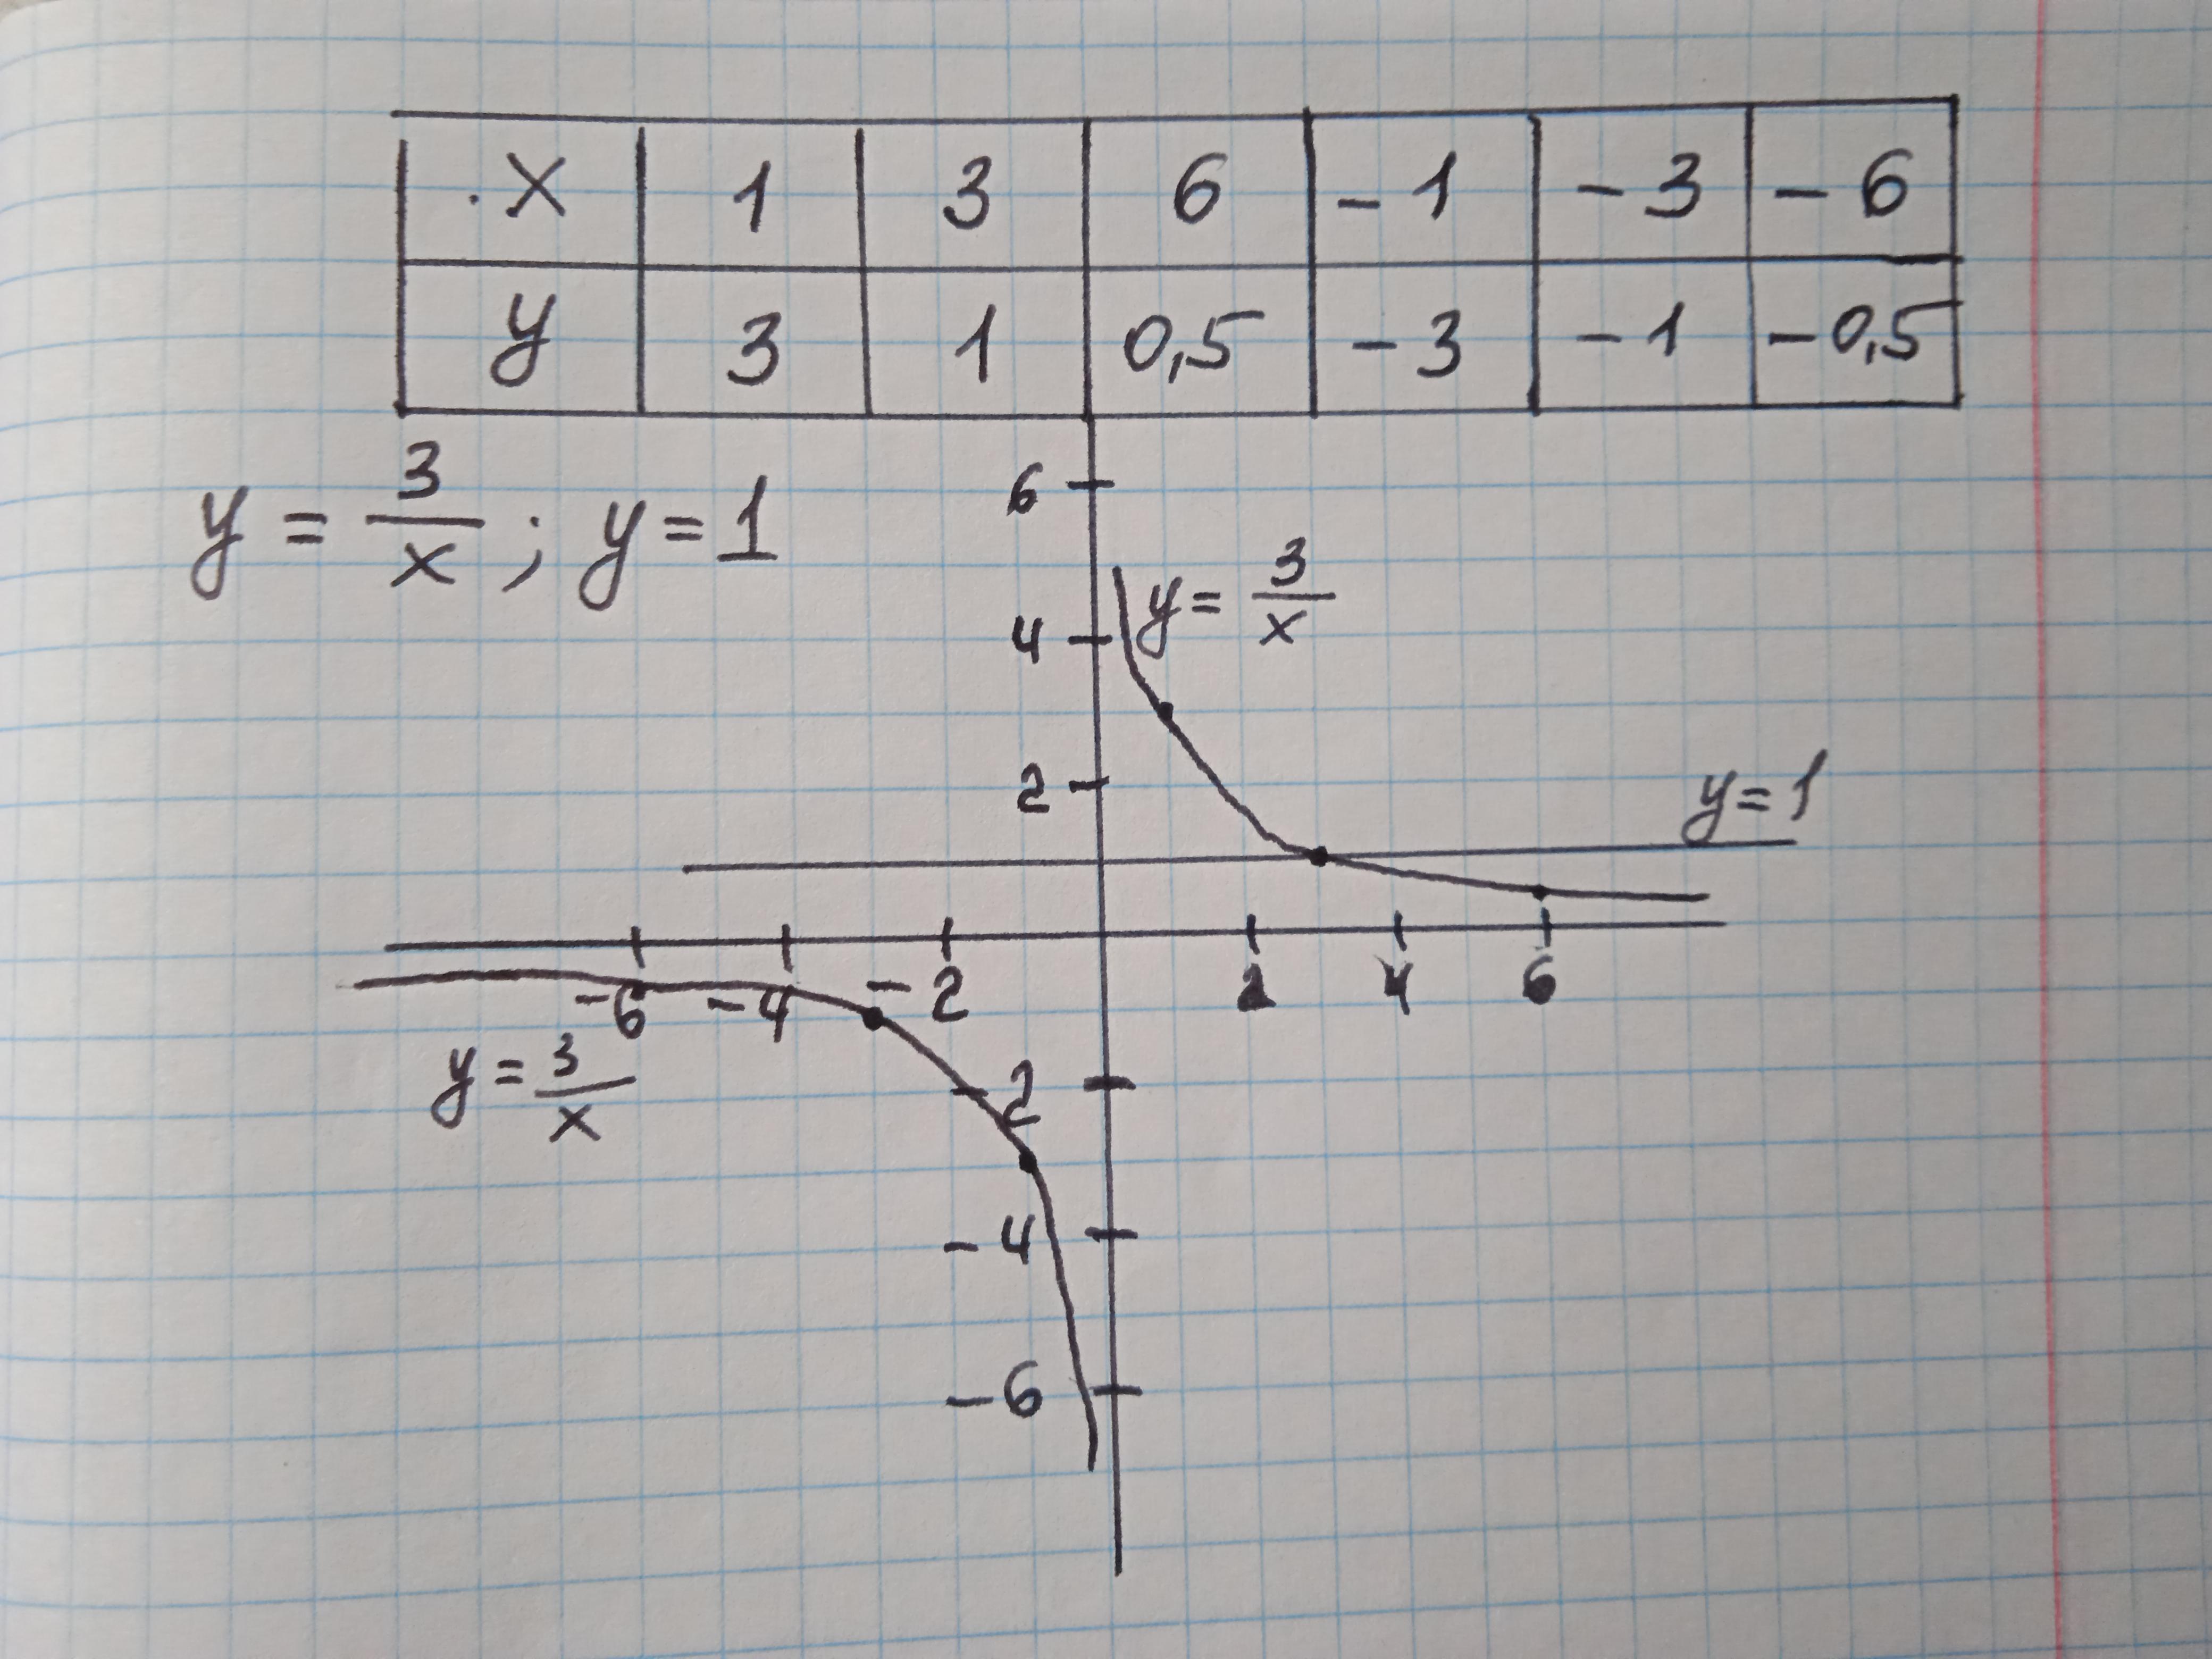 x 1 3 6 -1 -3 -6
y 3 1 0,5 -3 -1 -0,5
y = 3/x ; y = 1
6
y = 3/x
4
2
y = 1
-6 -4 -2 2 4 6
y = 3/x
-2
-4
-6